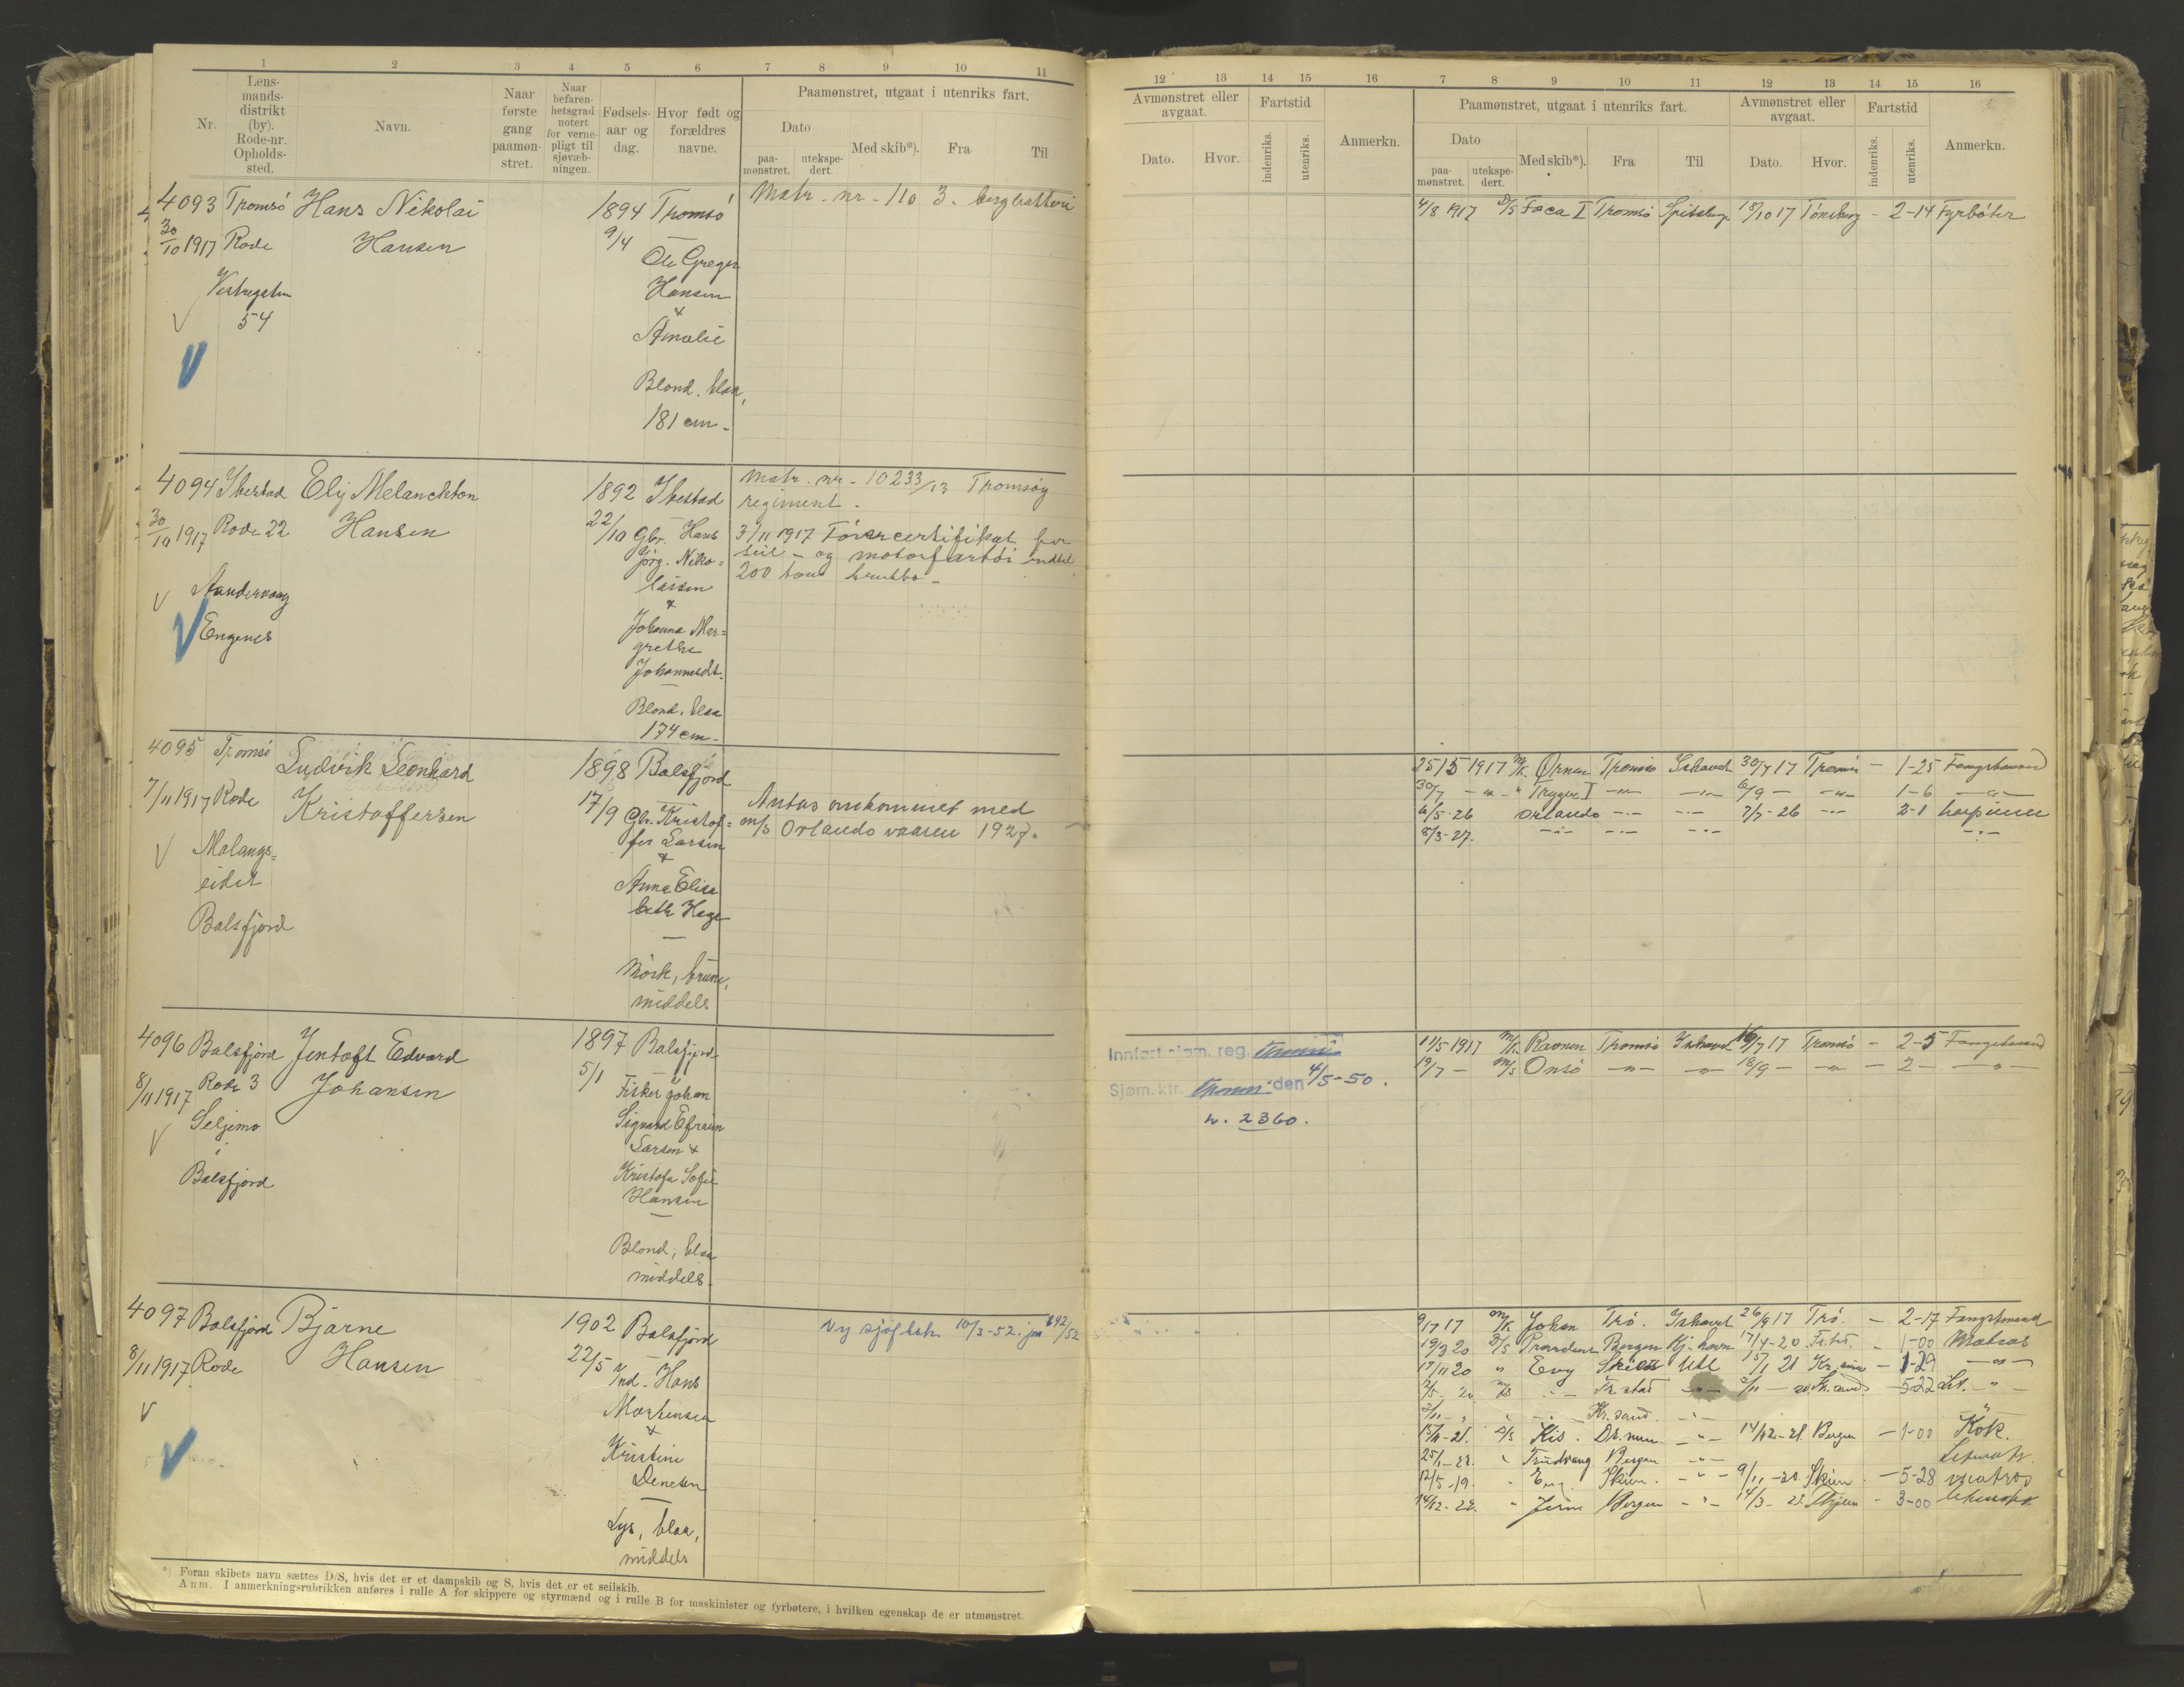 1 2 3 4 5 6 7 8 9 10 11
Nr.
Lens-
mands-
distrikt
(by).
Rode-nr.
Opholds-
sted.
Navn.
Naar
første
gang
paamøn-
stret.
Naar
befaren-
hetsgrad
notert
for verne-
pligt til
sjøvæb-
ningen.
Fødsels-
aar og
dag.
Hvor født og
forældres
navne.
Paamønstret, utgaat i utenriks fart.
Dato
paa-
mønstret.
utekspe-
dert.
Med skib*).
Fra
Til
4093 Tromsö Hans Nikolai 1894 Tromsö Matr. nr. 110 3. bergbatteri
30/10 1917 Rode Hansen 9/4
Ole Greger
Vestregaten Hansen
54 &
Amalie
Blond, blaa,
181 cm.
4094 Ibestad Elij Melanchton 1892 Ibestad Matr. nr. 10233/13 Tromsøy
regiment.
30/10 1917 Rode 22 Hansen 22/10 Gbr. Hans 3/11 1917 Förercertifikat for
Jørg. Niko= seil- og motorfartöi indtil
laisen 200 tons brutto.
Aandervaag &
Engenes Johanna Mar=
grethe
Johannesdt.
Blond, blaa
174 cm.
4095 Tromsö Ludvik Leonhard 1898 Balsfjord
7/11 1917 Rode Kristoffersen 17/9 Gbr. Kristof= Antas omkommet med
fer Larsen m/s Orlando vaaren 1927.
Malangs= &
eidet Anna Elisa
Balsfjord beth Hage
Mörk, brune,
middels.
4096 Balsfjord Jentoft Edvard 1897 Balsfjord
8/11 1917 Rode 3 Johansen 5/1 Fisker Johan
Seljemo Sigvard Efraim
i Larsen &
Balsfjord Kristofa Sofie
Hansen
Blond, blaa
middels.
4097 Balsfjord Bjarne 1902 Balsfjord Ny sjøf.bok 10/3-52. 692/52
8/11 1917 Rode Hansen 22/5 Ind. Hans
Mortensen
&
Kristine
Denesen
Lys, blaa,
middels
*) Foran skibets navn sættes D/S, hvis det er et dampskib og S, hvis det er et seilskib.
Anm. I anmerkningsrubrikken anføres i rulle A for skippere og styrmænd og i rulle B for maskinister og fyrbøtere, i hvilken egenskap de er utmønstret.
12 13 14 15 16 7 8 9 10 11 12 13 14 15 16
Avmønstret eller
avgaat.
Dato. Hvor.
Fartstid
indenriks.
utenriks.
Anmerkn.
Paamønstret, utgaat i utenriks fart.
Dato
paa-
mønstret.
utekspe-
dert.
Med skib*).
Fra
Til
Avmønstret eller
avgaat.
Dato. Hvor.
Fartstid
indenriks.
utenriks.
Anmerkn.
4/8 1917 D/S Foca I Tromsö Spitsberg. 18/10 17 Tönsberg - 2-14 Fyrböter
25/5 1917 M/K. Ørnen Tromsö Ishavet 30/7 17 Tromsö - 1-25 Fangstmand
30/7 - " - " Trygge I - " - - " - 6/9 - - " - 1-6 - " -
6/5-26 Orlando - " - - " - 7/7-26 - " - 2-1 harpuner
8/3-27. - " - - " - - " - - " -
Innført stam. reg. Tromsö
Sjøm.ktr. Tromsö den 4/5-50.
nr. 2360.
11/5 1917 M/K. Ravnen Tromsö Ishavet 16/7 17 Tromsö - 2-5 Fangstmand
19/7 - M/S Onsö - " - - " - 18/9 - - " - - 2 - - " -
9/7 17 M/K Johan Trö. Ishavet 26/9 17 Trö. - 2-17 Fangstmand
19/3 20 D/S Bergen Kj.havn 17/4-20 - 1-00 Matros
17/11 20 " Evy Skien Utl 15/1 21 Kr.ania - 1-29 - " -
Fr.stad 5-22 Lt. "
Kr.sand. - " -
15/11-21. D/S Kis. Dr.men - " - 14/12-21. Bergen - 1-00 Kok.
25/1-22. " Trudvang Bergen - " - Letmatr.
12/5-19. " Skien - " - 9/11-20. Skien - 5-28 matros
14/12-22. " Bergen - " - 14/3- - 3-00